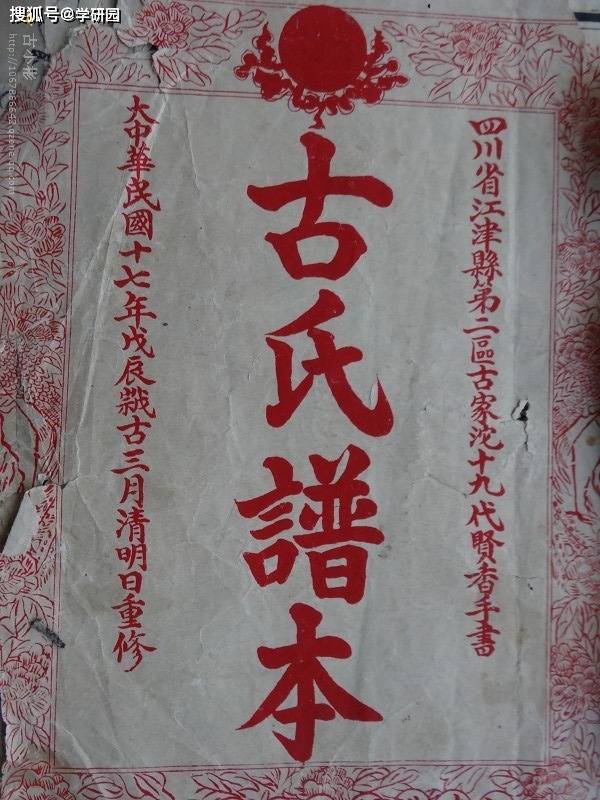 搜狐号@学研园
四川省江津縣第二區古家沱十九代賢香手書
古氏譜本
大中華民國十七年戊辰歲古三月清明日重修